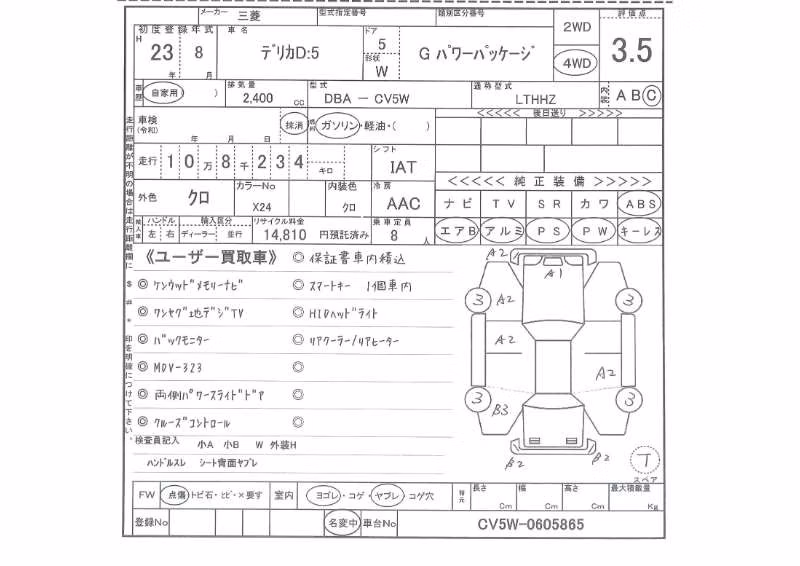 メーカー 三菱 型式指定番号 類別区分番号 2WD 評価点
初度登録年式 車名 ドア
H 23 8 デリカD:5 5 G パワーパッケージ 3.5
年 月 形状 W 4WD
車歴 自家用 ) 排気量 2,400 CC 型式 DBA － CV5W 通称型式 LTHHZ A B C
車検 (令和) 年 月 日 抹消 ガソリン・軽油・( ) <<<<< 後日送り >>>>>
走行 1 0 万 8 千 2 3 4 キロ シフト IAT
<<<<< 純正装備 >>>>>
外色 クロ カラーNo X24 内装色 クロ 冷房 AAC
ナビ TV SR カワ ABS
ハンドル 左 右 輸入区分 ディーラー 並行 リサイクル料金 14,810 円預託済み 乗車定員 8 人
エアB アルミ PS PW キーレス
走行距離が不明の場合は走行距離欄に
$
#
*
印を明確につけて下さい。
《ユーザー買取車》 ◎ 保証書車内積込
◎ ケンウッドメモリーナビ ◎ スマートキー 1個車内
◎ ワンセグ地デジTV ◎ HIDヘッドライト
◎ バックモニター ◎ リアクーラー/リアヒーター
◎ MDV-323 ◎
◎ 両側パワースライドドア ◎
◎ クルーズコントロール ◎
A2
A1
3 A2 3
A2
A2
3 B3 3
B2 B2
T
スペア
検査員記入 小A 小B W 外装H
ハンドルスレ シート背面ヤブレ
FW 点傷・トビ石・ヒビ・×要す 室内 ヨゴレ・コゲ・ヤブレ・コゲ穴 長さ Cm 幅 Cm 高さ Cm 最大積載量 Kg
登録No 名変中 車台No CV5W-0605865